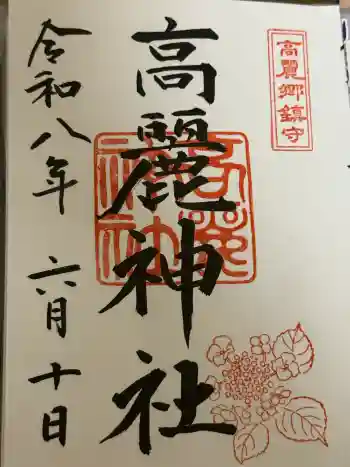 高麗郷鎮守
高麗神社
令和八年 六月十日